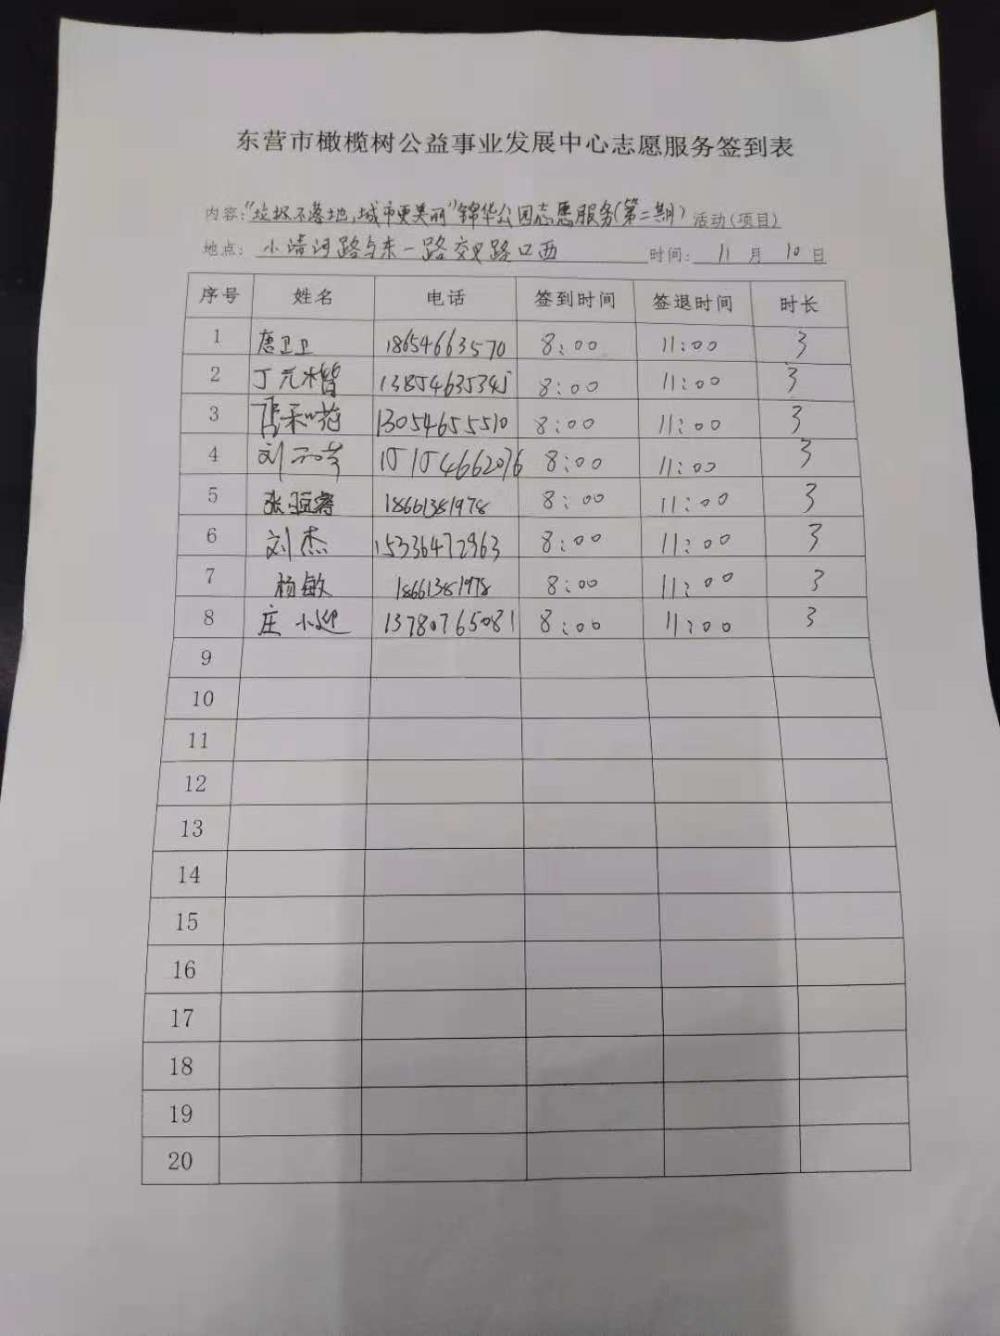 东营市橄榄树公益事业发展中心志愿服务签到表
内容:"垃圾不落地,城市更美丽"锦华公园志愿服务(第二期)活动(项目)
地点: 小清河路与东一路交叉路口西 时间: 11 月 10 日
序号 姓名 电话 签到时间 签退时间 时长
1 唐卫卫 18654663570 8:00 11:00 3
2 丁元楷 13854635345 8:00 11:00 3
3 13054655510 8:00 11:00 3
4 刘 15154662076 8:00 11:00 3
5 张 18661381978 8:00 11:00 3
6 刘杰 15336472963 8:00 11:00 3
7 杨敏 18661381978 8:00 11:00 3
8 庄小迎 13780765081 8:00 11:00 3
9
10
11
12
13
14
15
16
17
18
19
20